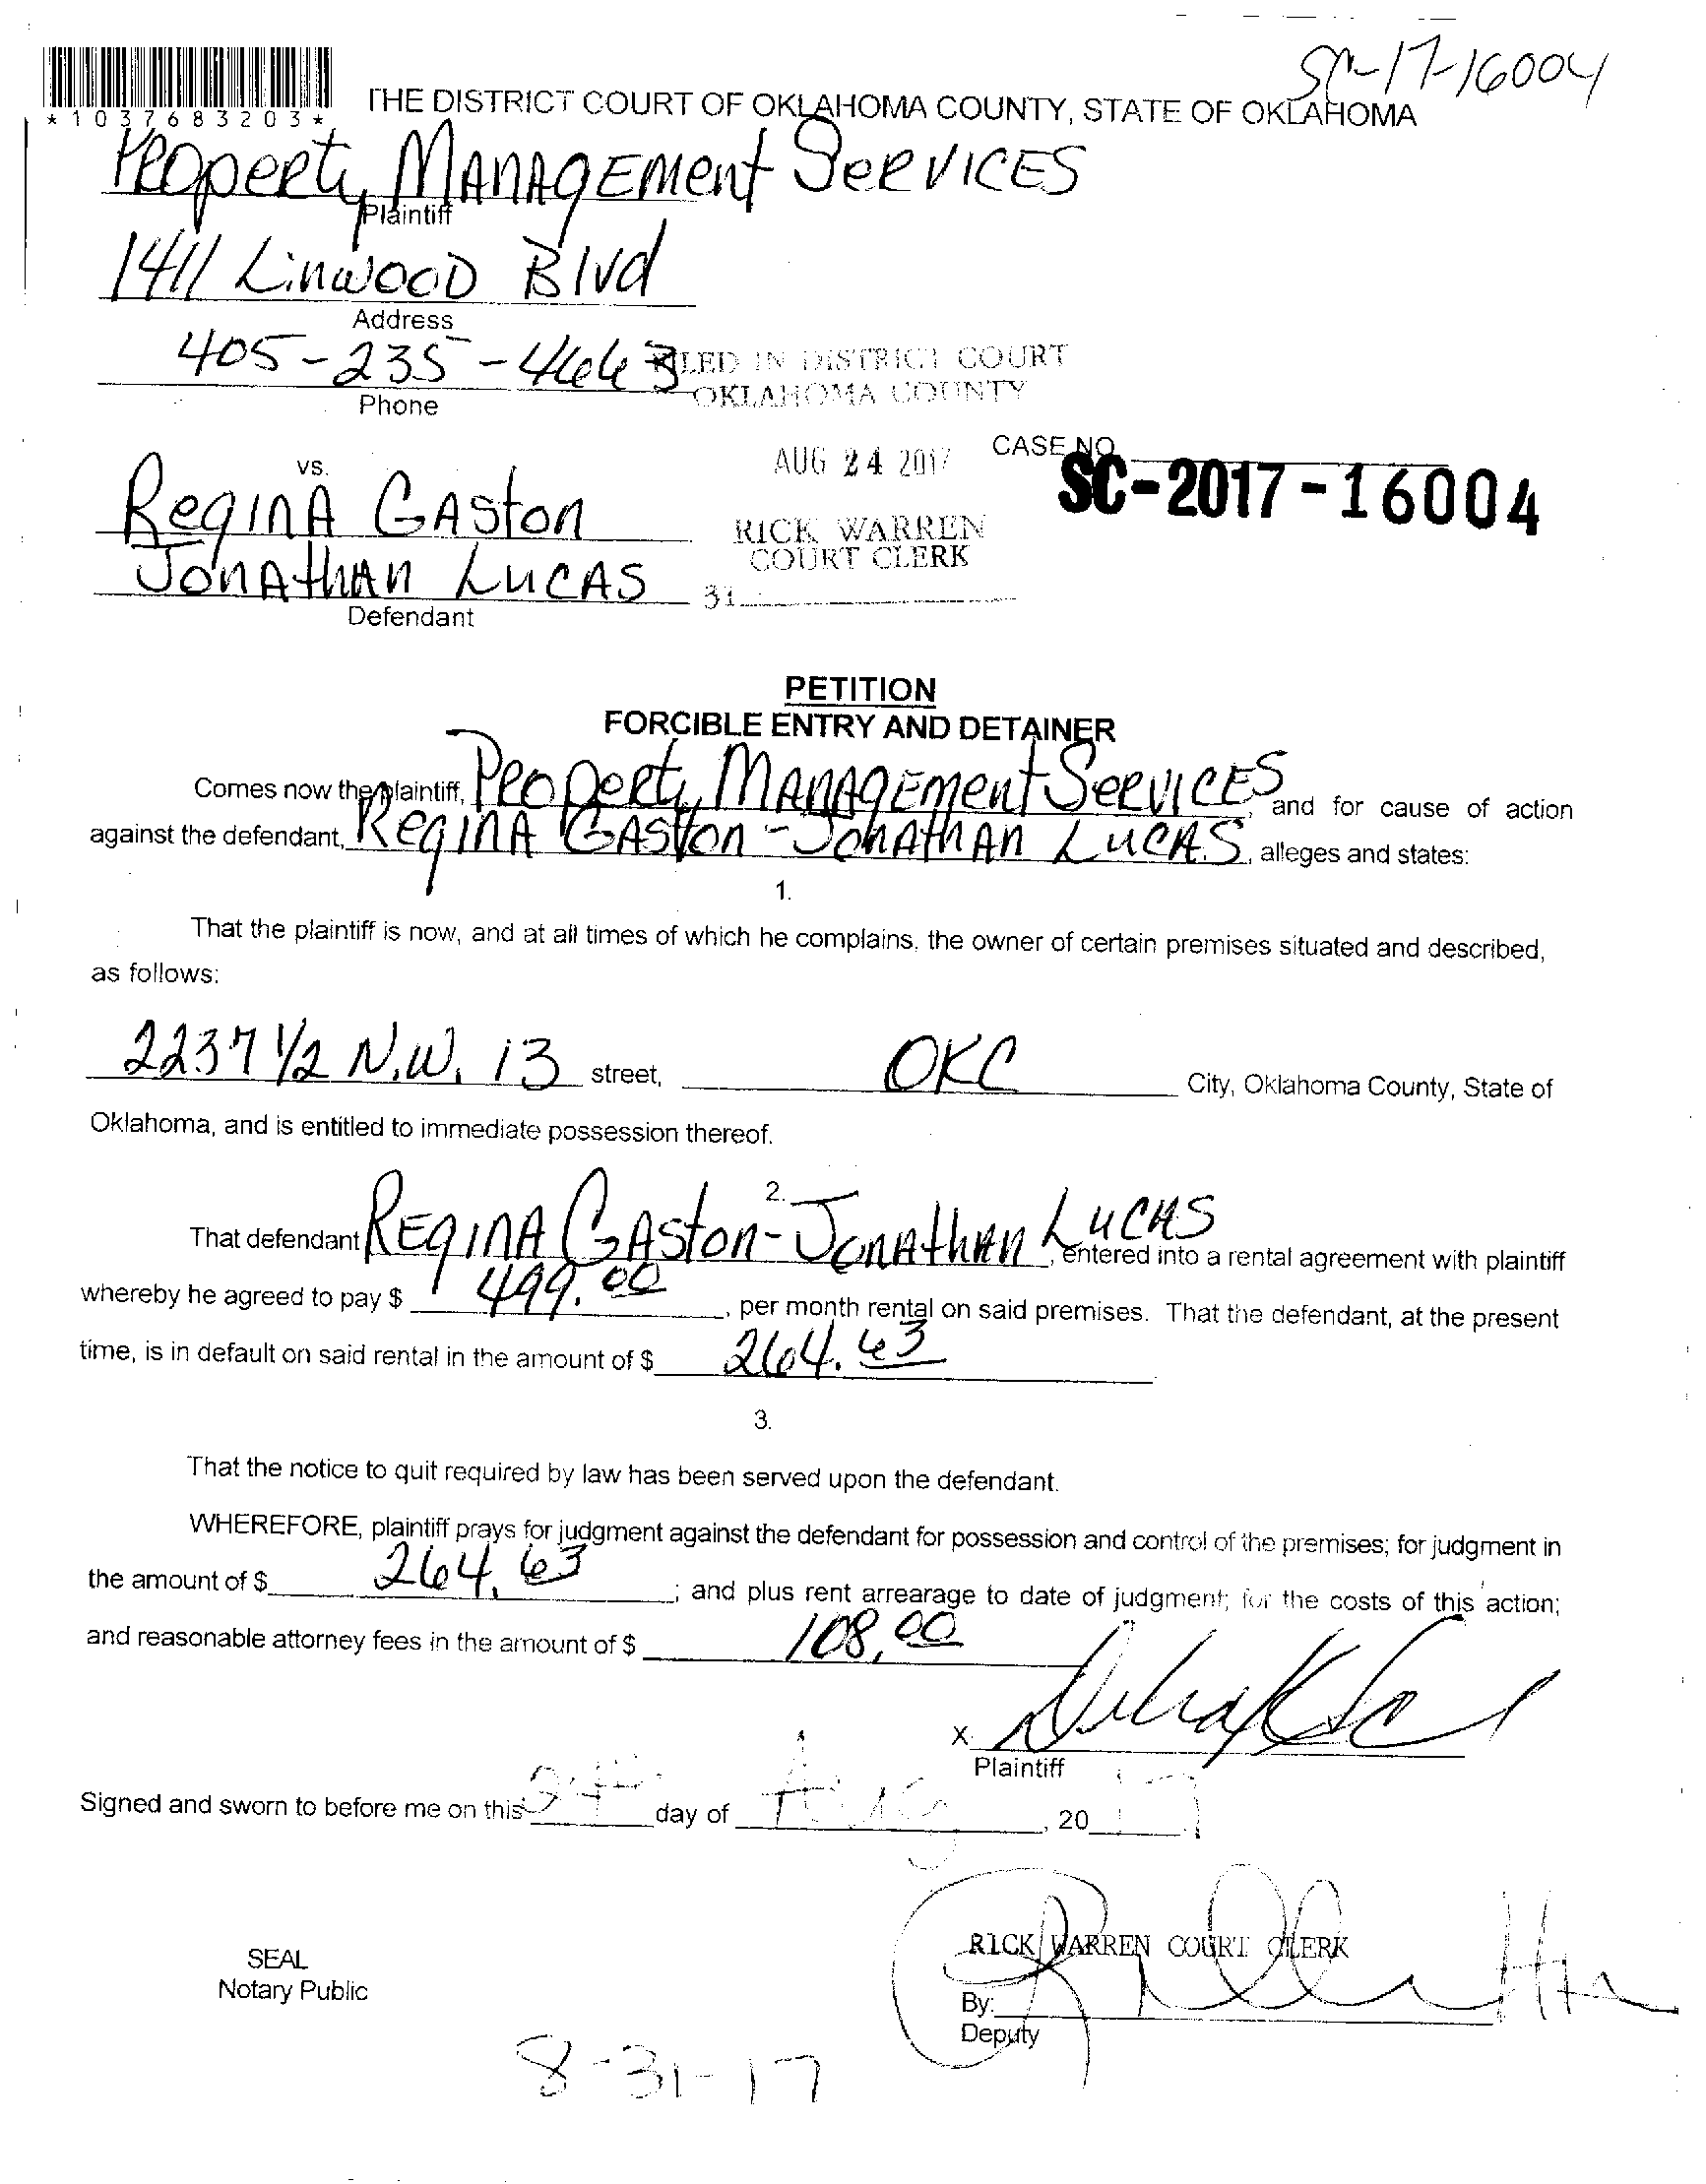 SC-17-16004
*1037683203*
THE DISTRICT COURT OF OKLAHOMA COUNTY, STATE OF OKLAHOMA
Property Management Services
Plaintiff
1411 Linwood Blvd
Address
405-235-4663
Phone
FILED IN DISTRICT COURT
OKLAHOMA COUNTY
AUG 24 2017
CASE NO.
SC-2017-16004
vs.
Regina Gaston
RICK WARREN
COURT CLERK
Jonathan Lucas
31
Defendant
PETITION
FORCIBLE ENTRY AND DETAINER
Comes now the plaintiff, Property Management Services and for cause of action
against the defendant, Regina Gaston - Jonathan Lucas, alleges and states:
1.
That the plaintiff is now, and at all times of which he complains, the owner of certain premises situated and described,
as follows:
2237 1/2 N.W. 13 street, OKC City, Oklahoma County, State of
Oklahoma, and is entitled to immediate possession thereof.
2.
That defendant Regina Gaston - Jonathan Lucas, entered into a rental agreement with plaintiff
whereby he agreed to pay $ 499.00, per month rental on said premises. That the defendant, at the present
time, is in default on said rental in the amount of $ 264.63
3.
That the notice to quit required by law has been served upon the defendant.
WHEREFORE, plaintiff prays for judgment against the defendant for possession and control of the premises; for judgment in
the amount of $ 264.63; and plus rent arrearage to date of judgment; for the costs of this action;
and reasonable attorney fees in the amount of $ 108.00
X
Plaintiff
Signed and sworn to before me on this 24th day of Aug, 2017
RICK WARREN COURT CLERK
SEAL
Notary Public
By:
Deputy
8-31-17